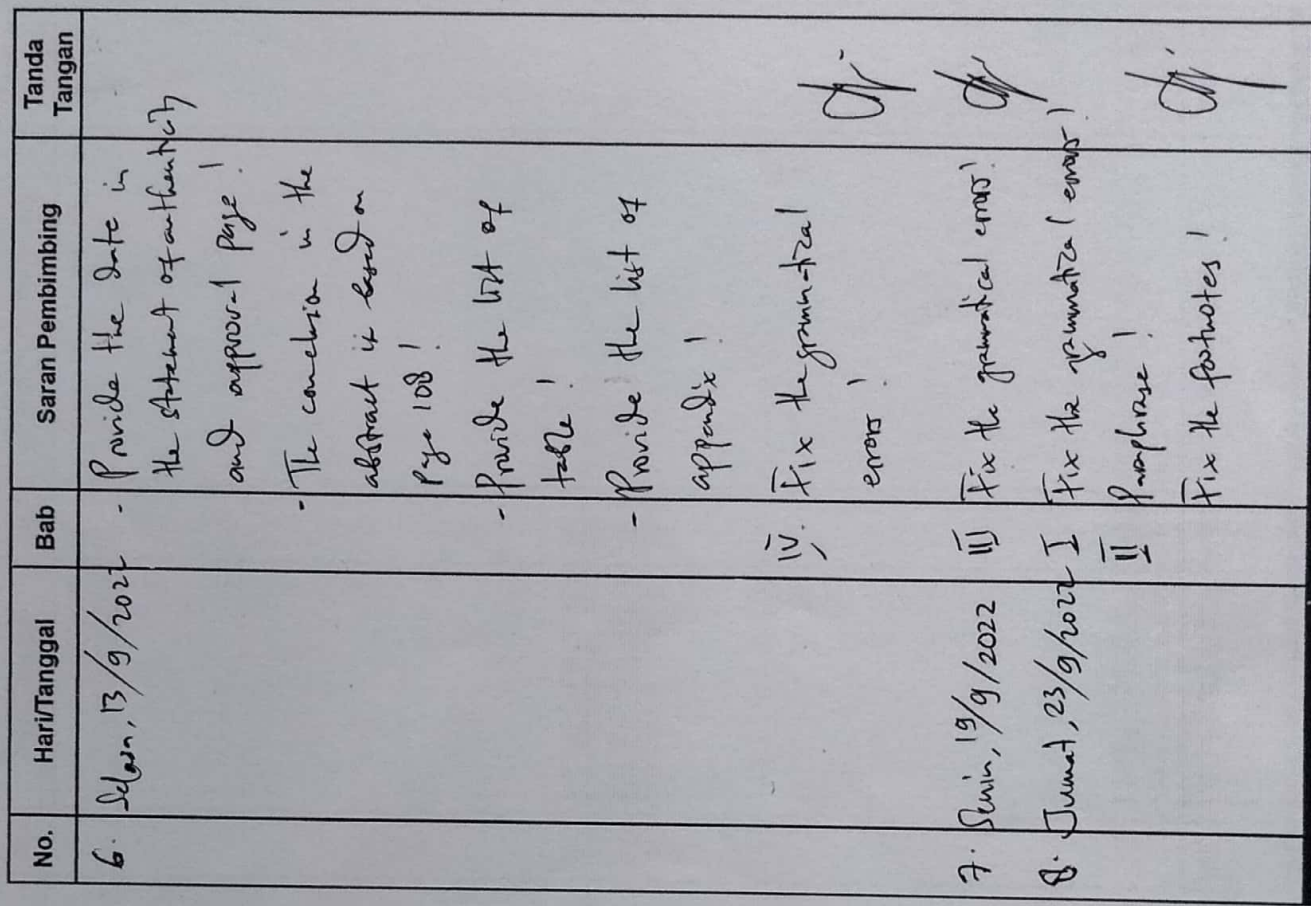 No. Hari/Tanggal Bab Saran Pembimbing Tanda Tangan
6. Selasa, 13/9/2022 - Provide the date in
the statement of authenticity
and approval page!
- The conclusion in the
abstract is based on
page 108!
- Provide the list of
table!
- Provide the list of
appendix!
IV. Fix the grammatical
errors!
7. Senin, 19/9/2022 III Fix the grammatical errors!
8. Jumat, 23/9/2022 I Fix the grammatical errors!
II Paraphrase!
Fix the footnotes!